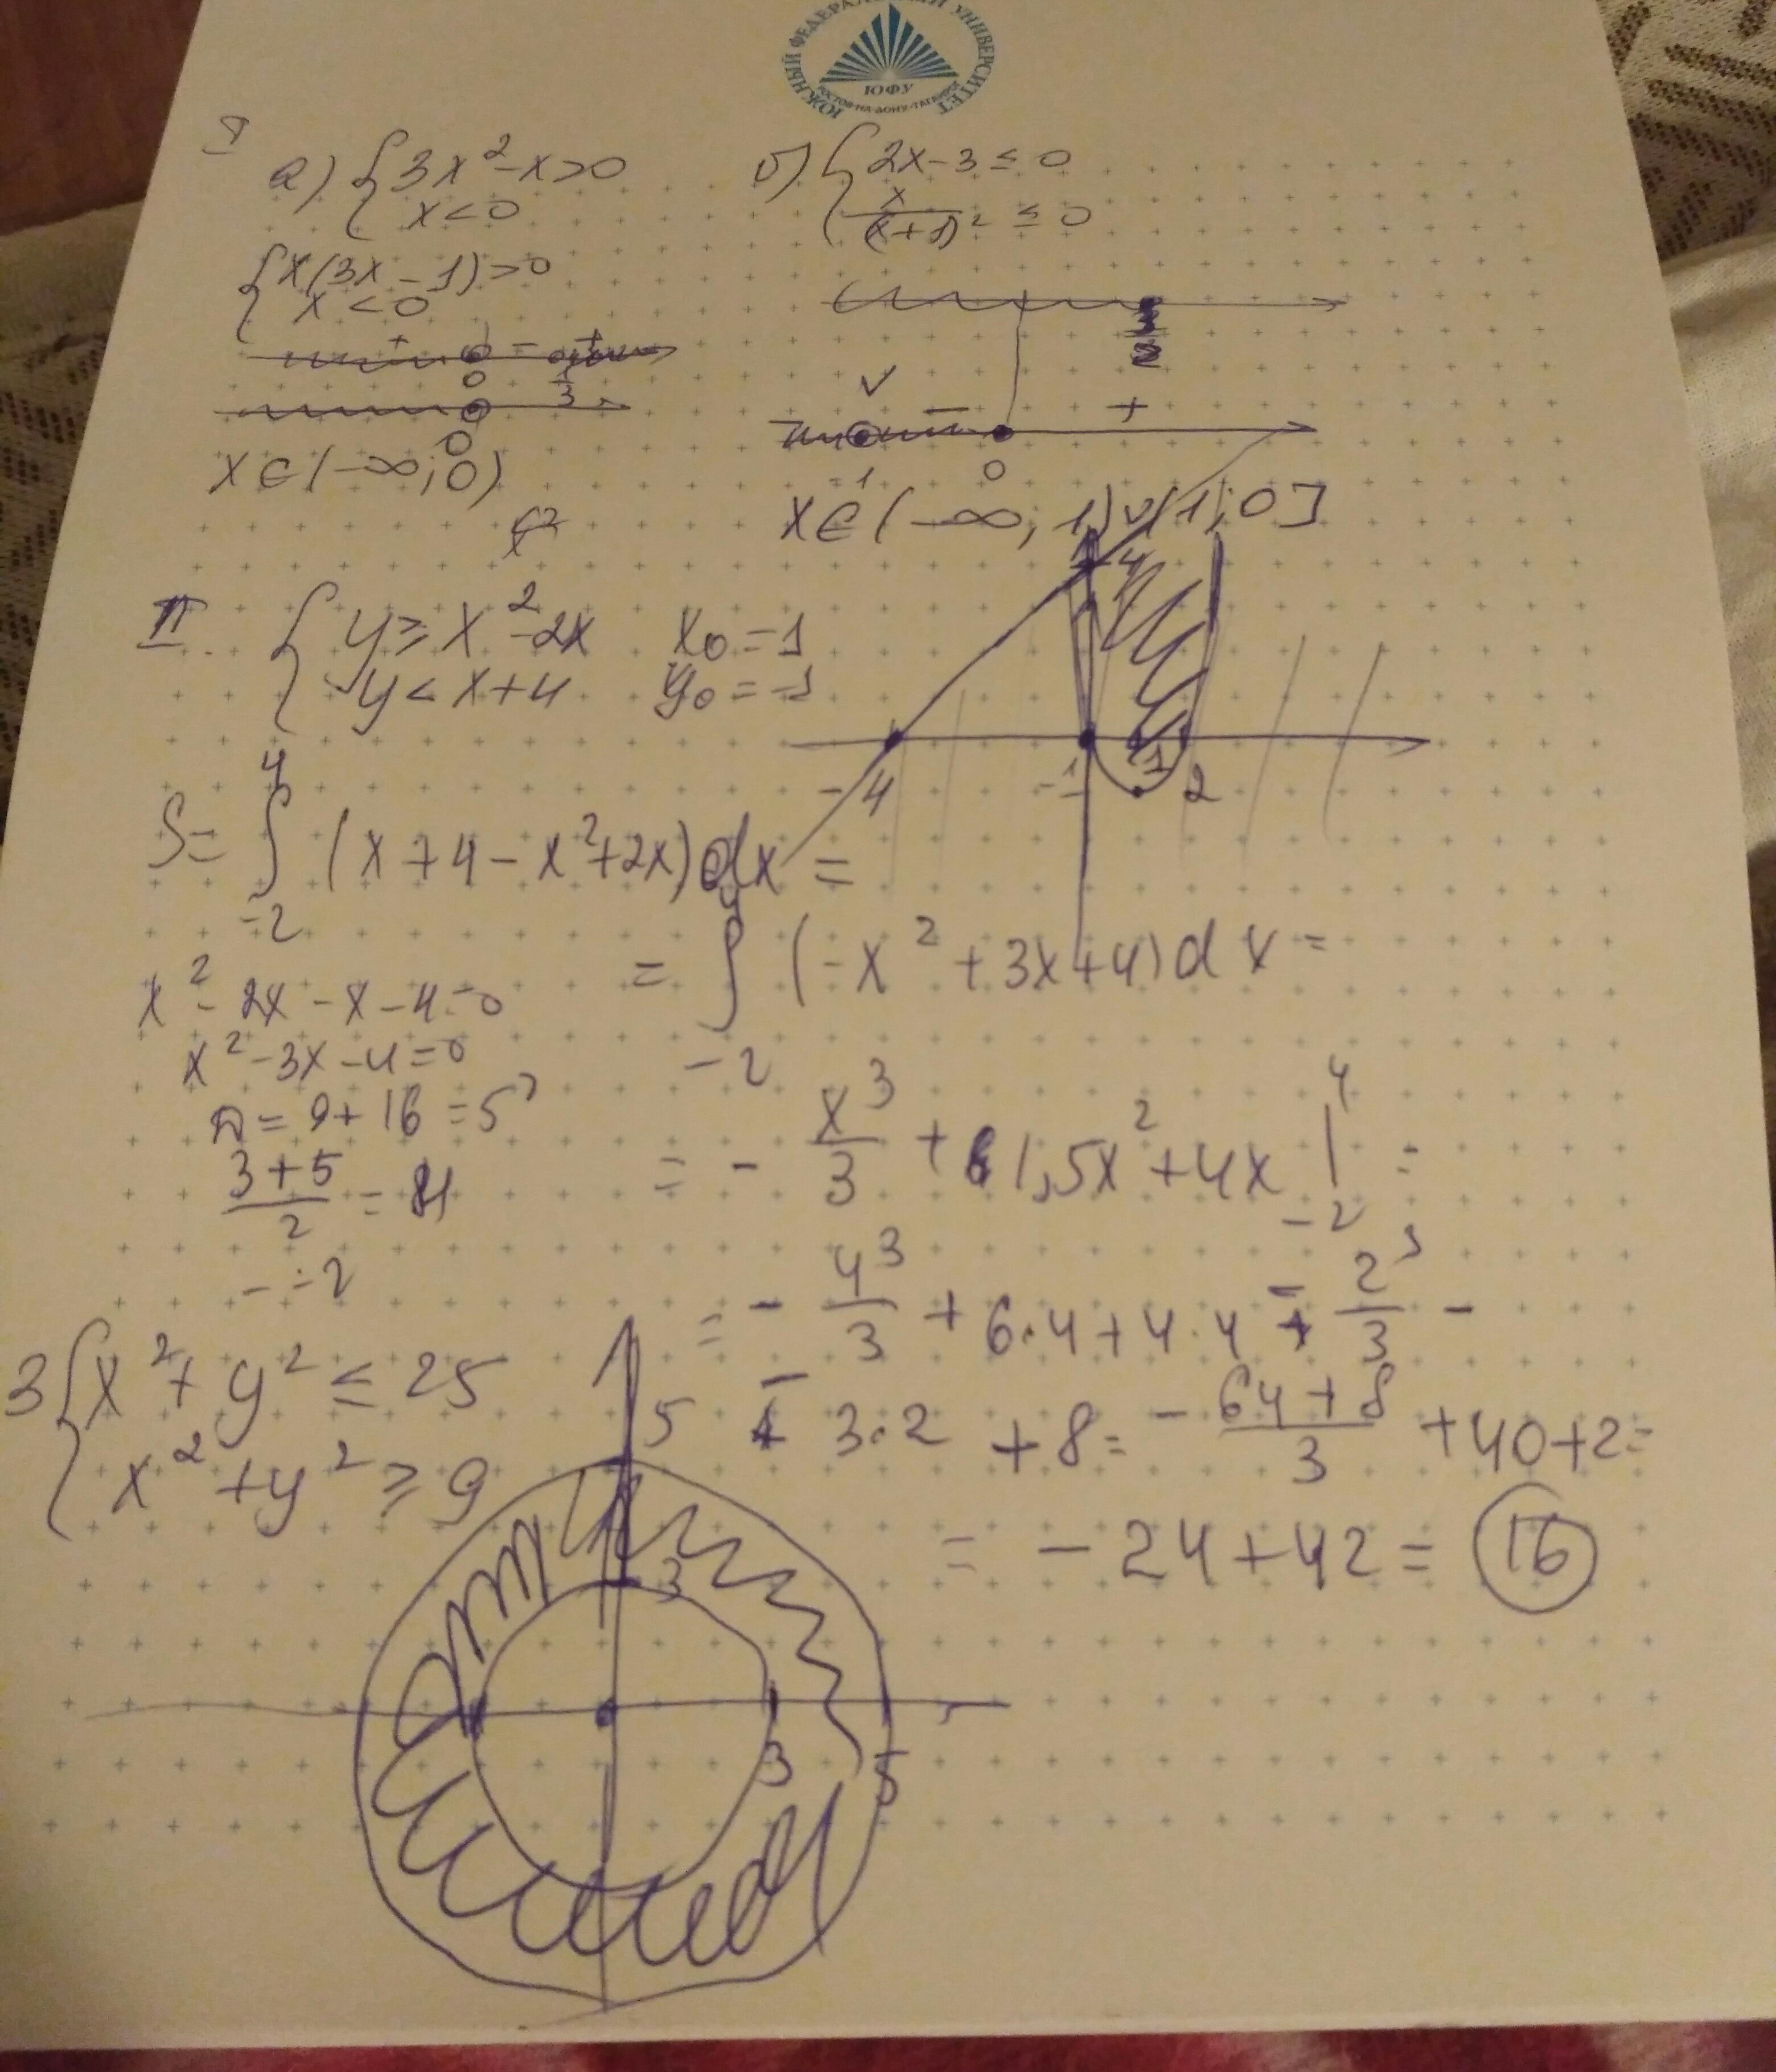 ЮЖНЫЙ ФЕДЕРАЛЬНЫЙ УНИВЕРСИТЕТ
ЮФУ
РОСТОВ-НА-ДОНУ-ТАГАНРОГ
I
а) { 3x² - x > 0
x < 0
{ x(3x - 1) > 0
x < 0
+ - +
0 1/3
0
x ∈ (-∞; 0)
б) { 2x - 3 ≤ 0
x/(x+1)² ≤ 0
3/2
- +
-1 0
x ∈ (-∞; 1) ∪ (1; 0]
x²
II. { y ≥ x² - 2x x₀ = 1
y < x + 4 y₀ = -1
4
-4 -1 1 2
S = ∫₋₂⁴ (x + 4 - x² + 2x) dx =
= ∫₋₂⁴ (-x² + 3x + 4) dx =
x² - 2x - x - 4 = 0
x² - 3x - 4 = 0
D = 9 + 16 = 5²
(3+5)/2 = 4
- ÷ 2
= - x³/3 + 1,5x² + 4x |₋₂⁴ =
= - 4³/3 + 6·4 + 4·4 - 2³/3 -
- 3·2 + 8 = - (64+8)/3 + 40 + 2 =
= - 24 + 42 = 16
3 { x² + y² ≤ 25
x² + y² ≥ 9
5
3
3 5